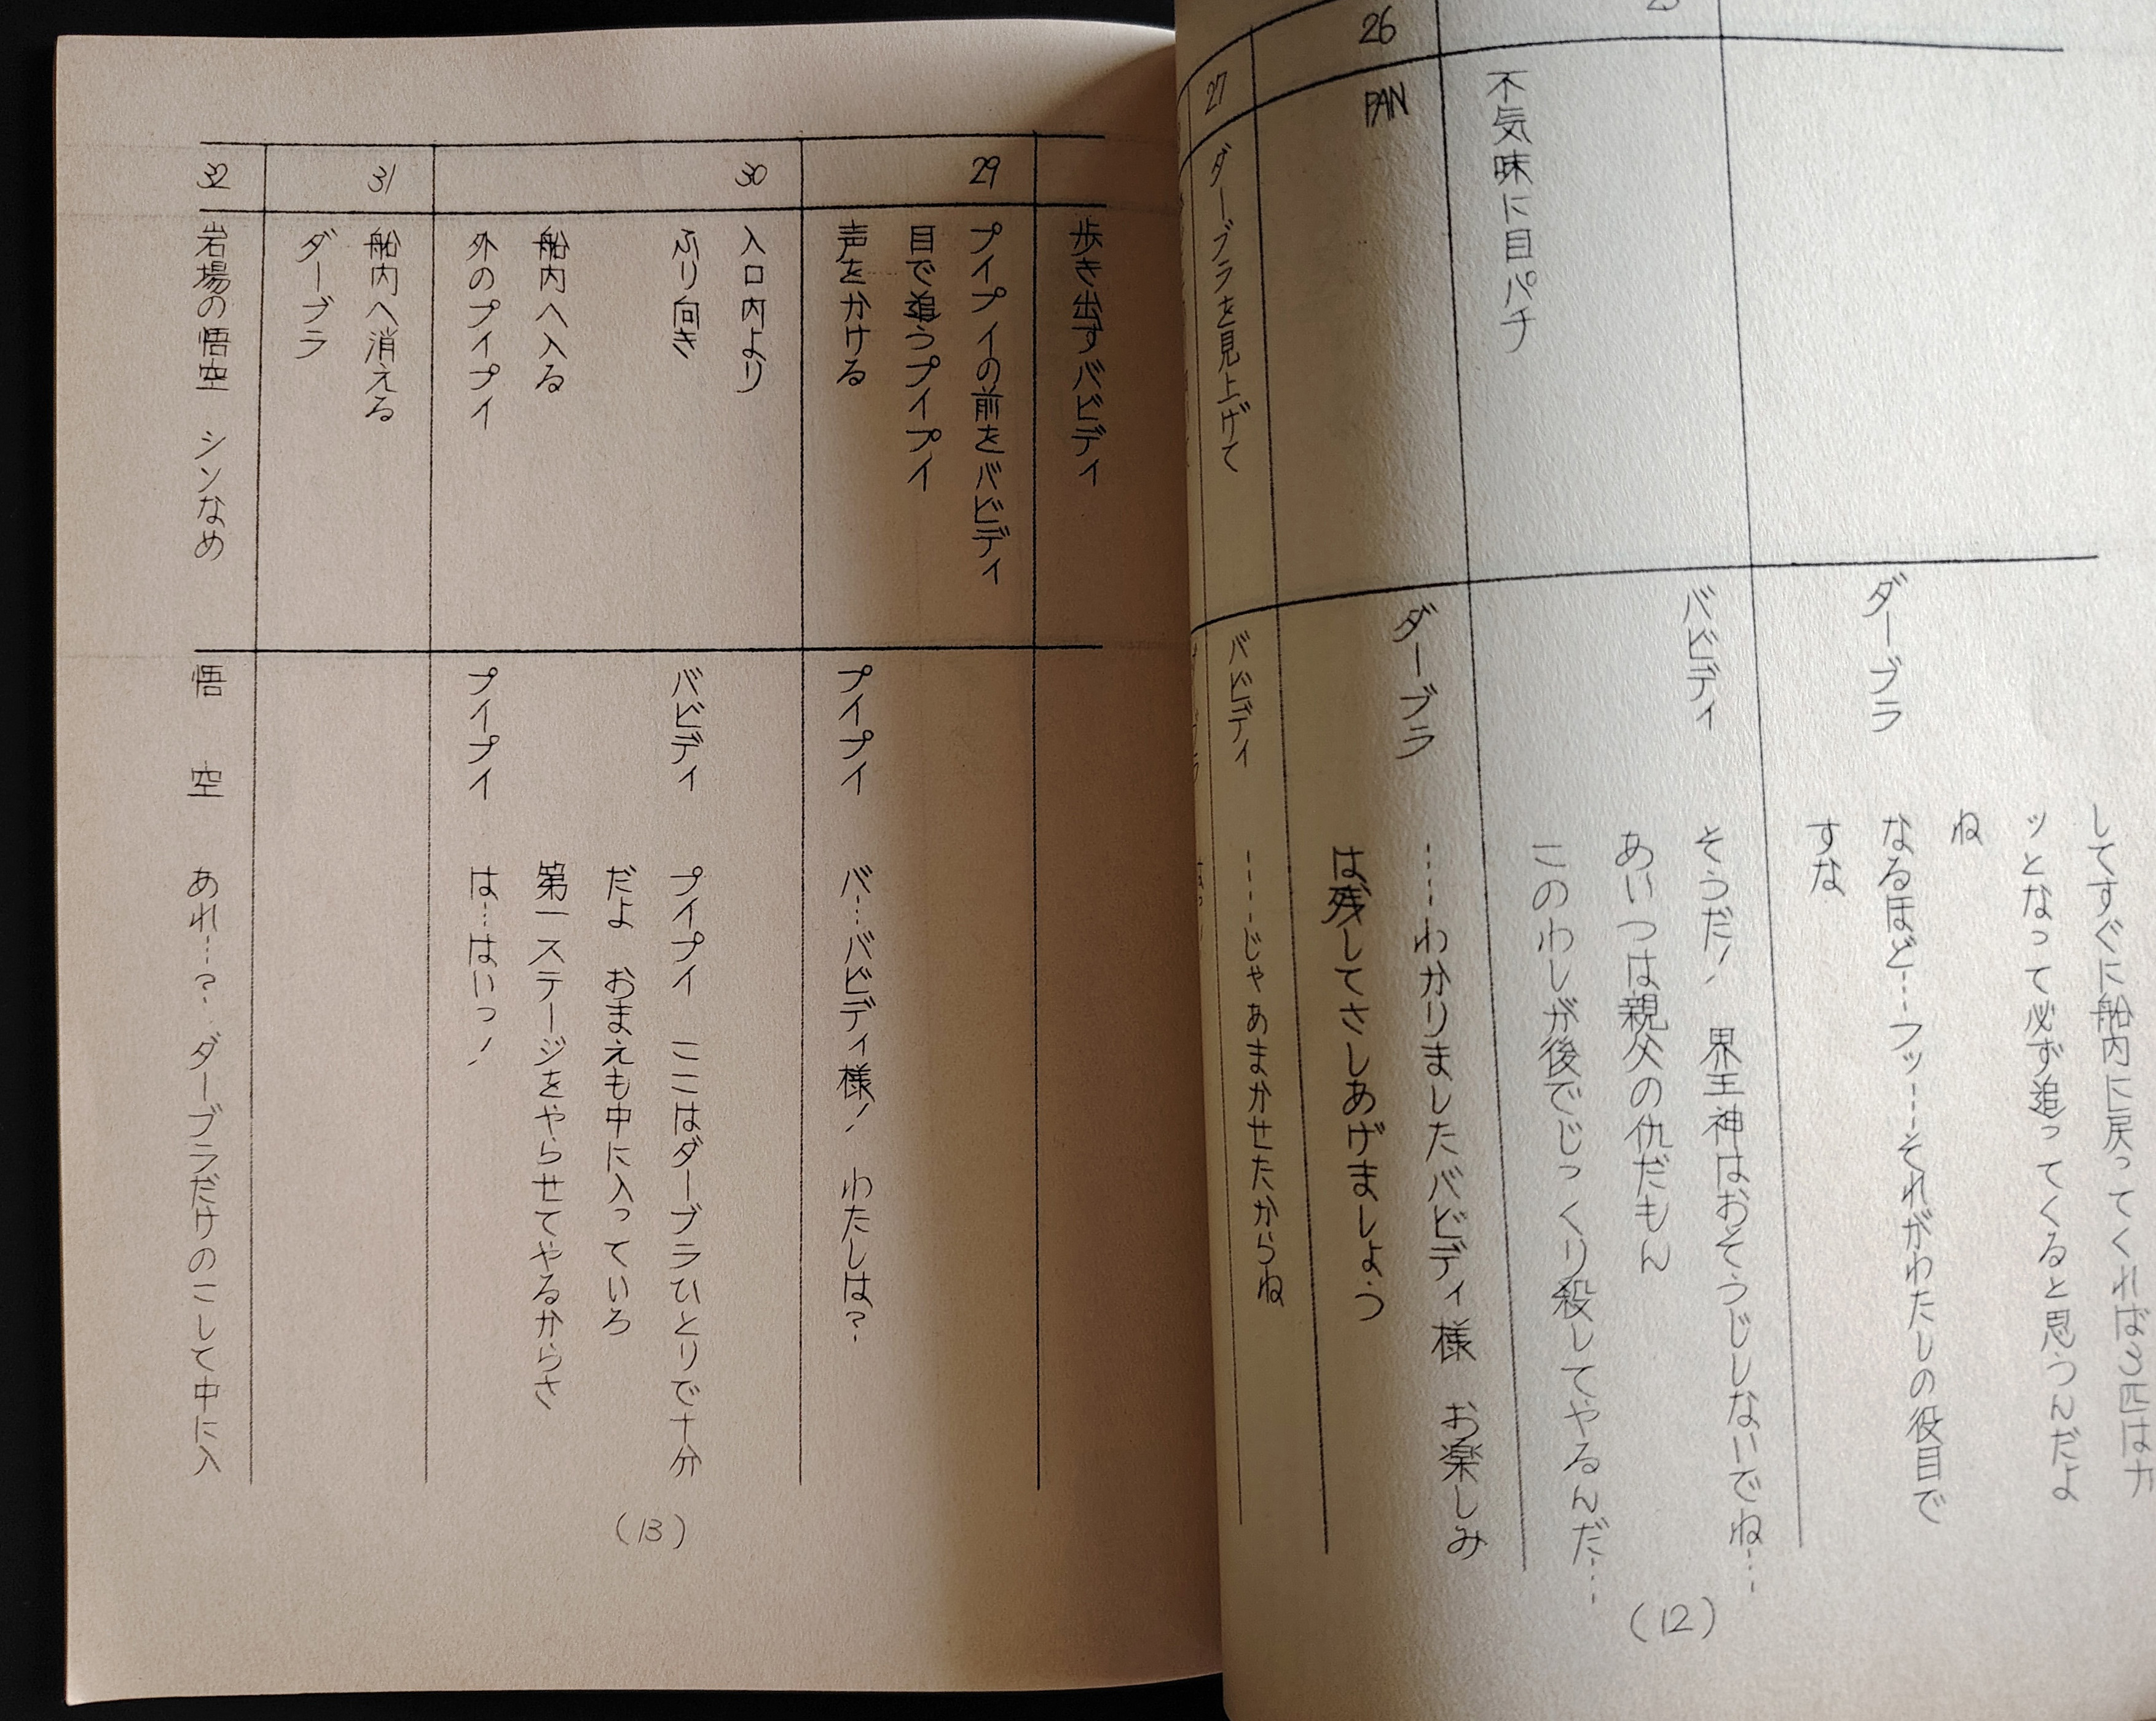 してすぐに船内に戻ってくれば3匹はカ
ッとなって必ず追ってくると思うんだよ
ね
ダーブラ
なるほど…フッ…それがわたしの役目で
すな
不気味に目パチ
バビディ
そうだ! 界王神はおそうじしないでね…
あいつは親父の仇だもん
このわしが後でじっくり殺してやるんだ…
26
PAN
ダーブラ
……わかりましたバビディ様 お楽しみ
は残してさしあげましょう
27
ダーブラを見上げて
バビディ
……じゃあまかせたからね
(12)
歩き出すバビディ
29
プイプイの前をバビディ
目で追うプイプイ
声をかける
プイプイ
バ…バビディ様! わたしは?
30
入口内より
ふり向き
バビディ
プイプイ ここはダーブラひとりで十分
だよ おまえも中に入っていろ
船内へ入る
第一ステージをやらせてやるからさ
外のプイプイ
プイプイ
は…はいっ!
31
船内へ消える
ダーブラ
32
岩場の悟空 シンなめ
悟空
あれ…? ダーブラだけのこして中に入
(13)